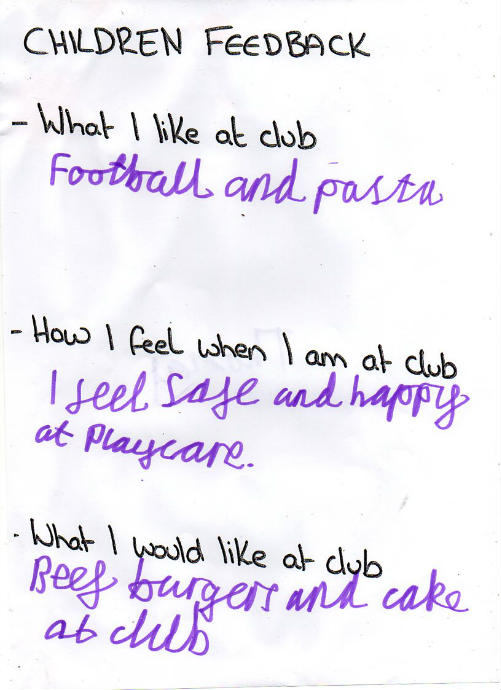 CHILDREN FEEDBACK
- What I like at club
Football and pasta
- How I feel when I am at club
I feel safe and happy
at Playcare.
- What I would like at club
Beef burgers and cake
at club